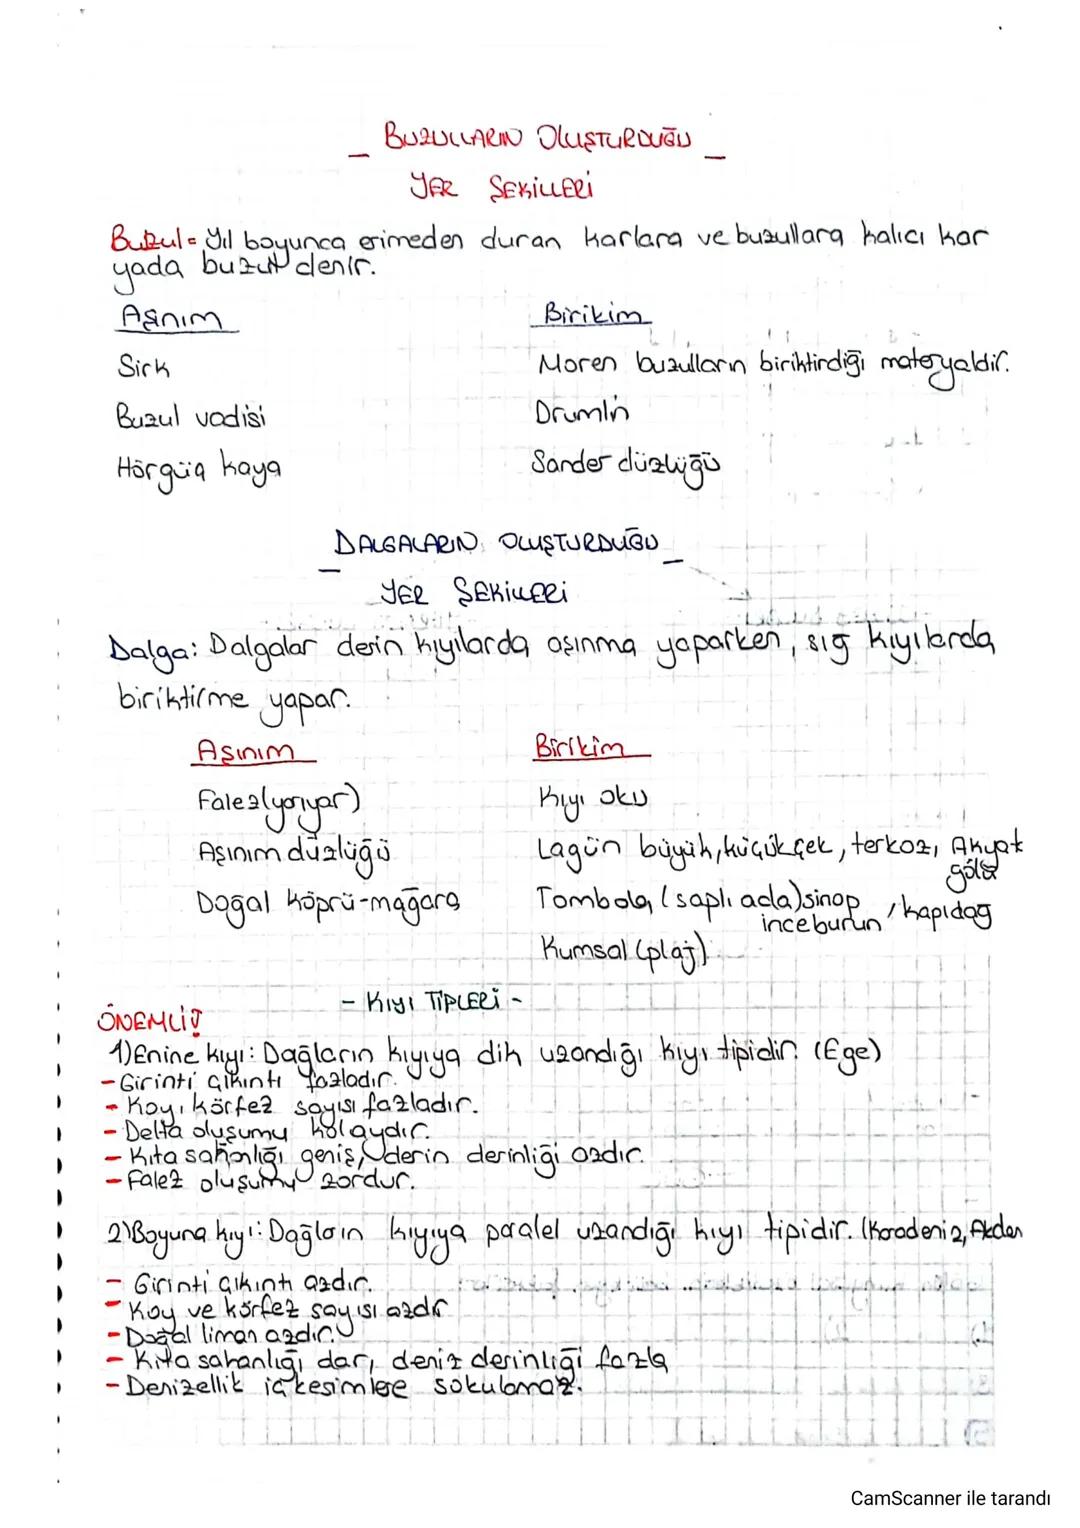 BUZULLARIN OLUŞTURDUĞU
YER ŞEKİLLERİ
Buzul= Yıl boyunca erimeden duran karlara ve buzullara kalıcı kar
yada buzul denir.
Aşınım
Birikim
Sirk
Moren buzulların biriktirdiği materyaldir.
Buzul vadisi
Drumlin
Hörgüç kaya
Sander düzlüğü
DALGALARIN OLUŞTURDUĞU
YER ŞEKİLLERİ
Dalga: Dalgalar derin kıyılarda aşınma yaparken, sığ kıyılarda
biriktirme yapar.
Aşınım
Birikim
Falez(yarıyar)
Kıyı oku
Aşınım düzlüğü
Lagün büyük,küçükçek, terkoz, Akyat
gölü
Doğal köprü-mağara
Tombola (saplı ada)sinop
inceburun, kapıdağ
Kumsal (plaj)
- KIYI TİPLERİ -
ÖNEMLİ!
1)Enine kıyı: Dağların kıyıya dik uzandığı kıyı tipidir. (Ege)
- Girinti çıkıntı fazladır.
- Koy, körfez sayısı fazladır.
- Delta oluşumu kolaydır.
- Kıta sahanlığı geniş, derin derinliği azdır.
- Falez oluşumu zordur.
2)Boyuna kıyı: Dağların kıyıya paralel uzandığı kıyı tipidir. (Karadeniz, Akden
- Girinti çıkıntı azdır.
- Koy ve körfez sayısı azdır
- Doğal liman azdır.
- Kıta sahanlığı dar, deniz derinliği fazla
- Denizellik iç kesimlere sokulamaz.
CamScanner ile tarandı